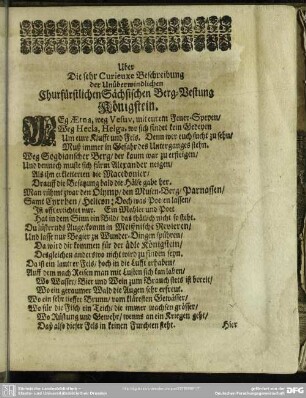 Uber
Die sehr Curieuxe Beschreibung
der Unüberwindlichen
Churfürstlichen Sächsischen Berg-Vestung
Königstein.
WEg Ætna, weg Vesuv, mit eurem Feuer-Speyen,
Weg Hecla, Helga, wo sich findet kein Gedeyen
Um eure Klufft und Fels. Denn wer euch sucht zu sehn,
Muß immer in Gefahr des Unterganges stehn.
Weg Sogdianscher Berg, der kaum war zu ersteigen,
Und dennoch muste sich für'm Alexander neigen,
Als ihn erkletterten die Macedonier,
Drauff die Besatzung bald die Päße gabe her.
Man rühmt zwar den Olymp, den Musen-Berg Parnassen,
Samt Cyrrhen, Helicon; Doch was Poeten lassen,
Ist offt erdichtet nur. Ein Mahler und Poet
Hat in dem Sinn ein Bild, das thätlich nicht so steht.
Du lüsternds Auge, komm in Meißnische Revieren,
Und lasse nur Begier zu Wunder-Dingen spühren,
Da wird dir kommen für der ädle Königstein,
Desgleichen anderswo nicht wird zu finden seyn.
Da ist ein lautrer Fels, hoch in die Lufft erhaben,
Auff dem nach Reisen man mit Lusten sich kan laben,
Wo Wasser, Bier und Wein zum Brauch stets ist bereit,
Wo ein geraumer Wald die Augen sehr erfreut.
Wo ein sehr tieffer Brunn, vom kläresten Gewässer,
Wo für die Fisch ein Teich, die immer wachsen grösser,
Wo Rüstung und Gewehr, wenns an ein Kriegen geht,
Daß also dieser Fels in keinen Furchten steht.
Hier